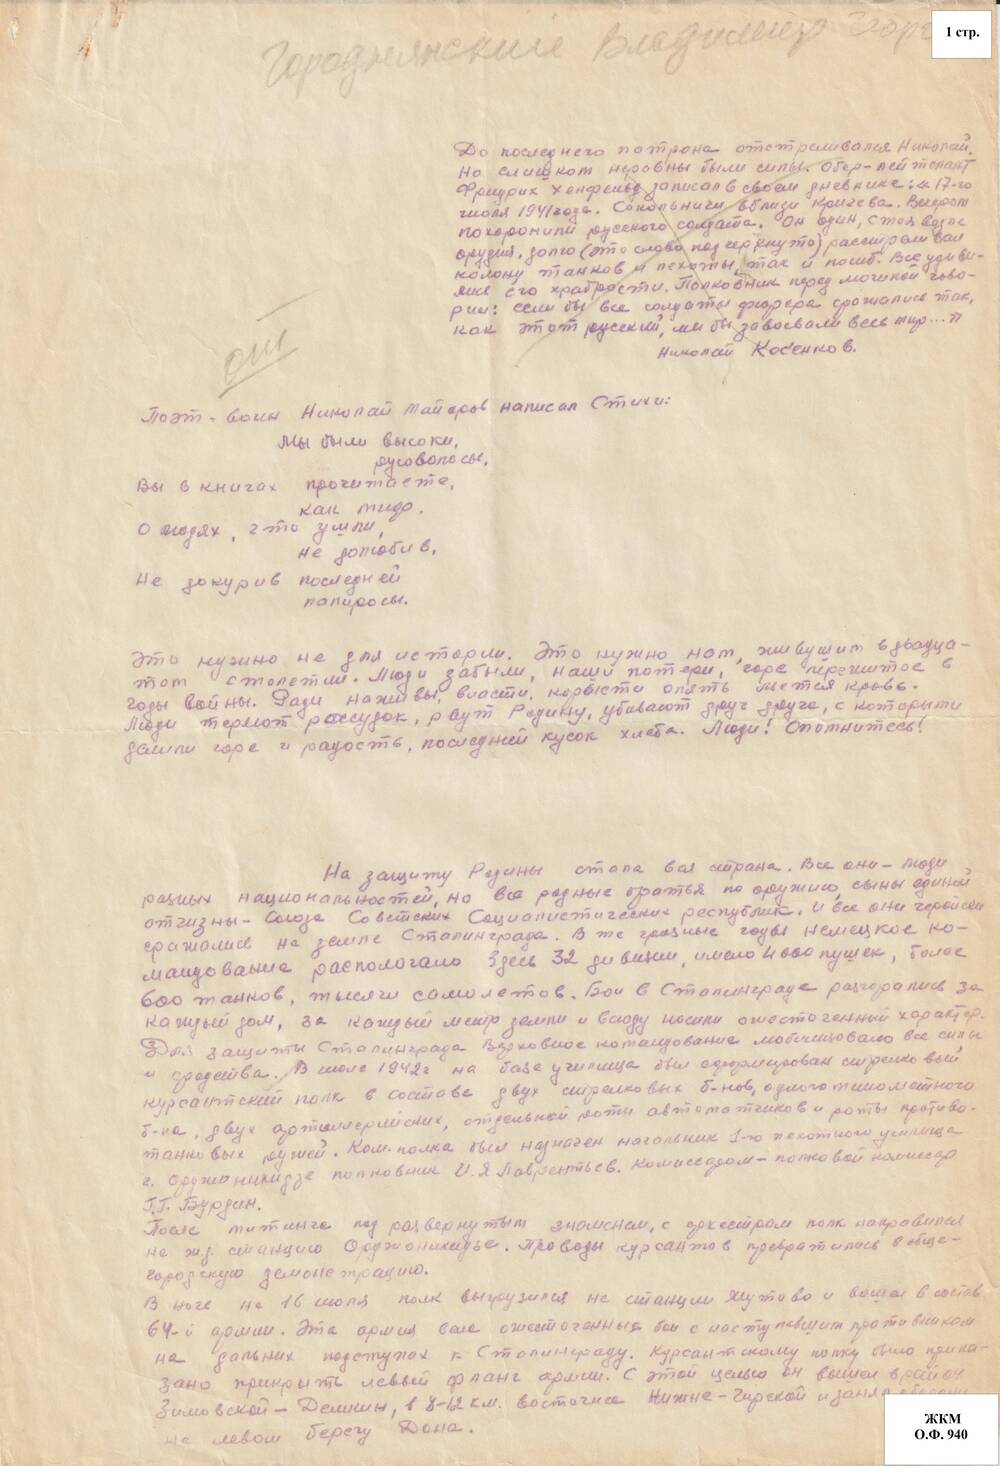 1 стр.
Городнянский Владимир
До последнего патрона отстреливался Николай.
Но слишком неравны были силы. Обер-лейтенант
Фридрих Хенфельд записал в своем дневнике: „17-го
июля 1941 года. Сокольничи вблизи Кричева. Вечером
похоронили русского солдата. Он один, стоя возле
орудия, долго (это слово подчеркнуто) расстреливал
колону танков и пехоты, так и погиб. Все удиви-
лись его храбрости. Полковник перед могилой гово-
рил: если бы все солдаты фюрера сражались так,
как этот русский, мы бы завоевали весь мир..."
Николай Косенков.
Поэт-воин Николай Майоров написал стихи:
Мы были высоки,
русоволосы,
Вы в книгах прочитаете,
как миф,
О людях, что ушли,
не долюбив,
Не докурив последней
папиросы.
Это нужно не для истории. Это нужно нам, живущим в двадца-
том столетии. Люди забыли, наши потери, горе пережитое в
годы войны. Ради наживы, власти, корысти опять льется кровь.
Люди теряют рассудок, рвут Родину, убивают друг друга, с которыми
делили горе и радость, последний кусок хлеба. Люди! Опомнитесь!
На защиту Родины стала вся страна. Все они - люди
разных национальностей, но все родные братья по оружию, сыны единой
отчизны - Союза Советских Социалистических республик. И все они геройски
сражались на земле Сталинграда. В те грозные годы немецкое ко-
мандование распологало здесь 32 дивизии, имело 4000 пушек, более
600 танков, тысячи самолетов. Бои в Сталинграде разгорались за
каждый дом, за каждый метр земли и всюду носили ожесточенный характер.
Для защиты Сталинграда Верховное командование мобилизовало все силы
и средства. В июле 1942 г на базе училища был сформирован стрелковый
курсантский полк в составе двух стрелковых б-нов, одного минометного
б-на, двух артиллерийских, отдельной роты автоматчиков и роты противо-
танковых ружей. Ком. полка был назначен начальник 1-го пехотного училища
г. Орджоникидзе полковник И.Я Лаврентьев. Комиссаром - полковой комиссар
Г.Г. Бурдин.
После митинга под развернутым знаменем, с оркестром полк направился
на ж.д. станцию Орджоникидзе. Проводы курсантов превратились в обще-
городскую демонстрацию.
В ночь на 16 июля полк выгрузился на станции Жутово и вошел в состав
64-й армии. Эта армия вела ожесточенные бои с наступавшим противником
на дальних подступах к Сталинграду. Курсантскому полку было прика-
зано прикрыть левый фланг армии. С этой целью он вышел в район
Зимовской - Демкин, в 8-12 км. восточнее Нижне-Чирской и занял оборону
на левом берегу Дона.
ЖКМ
О.Ф. 940